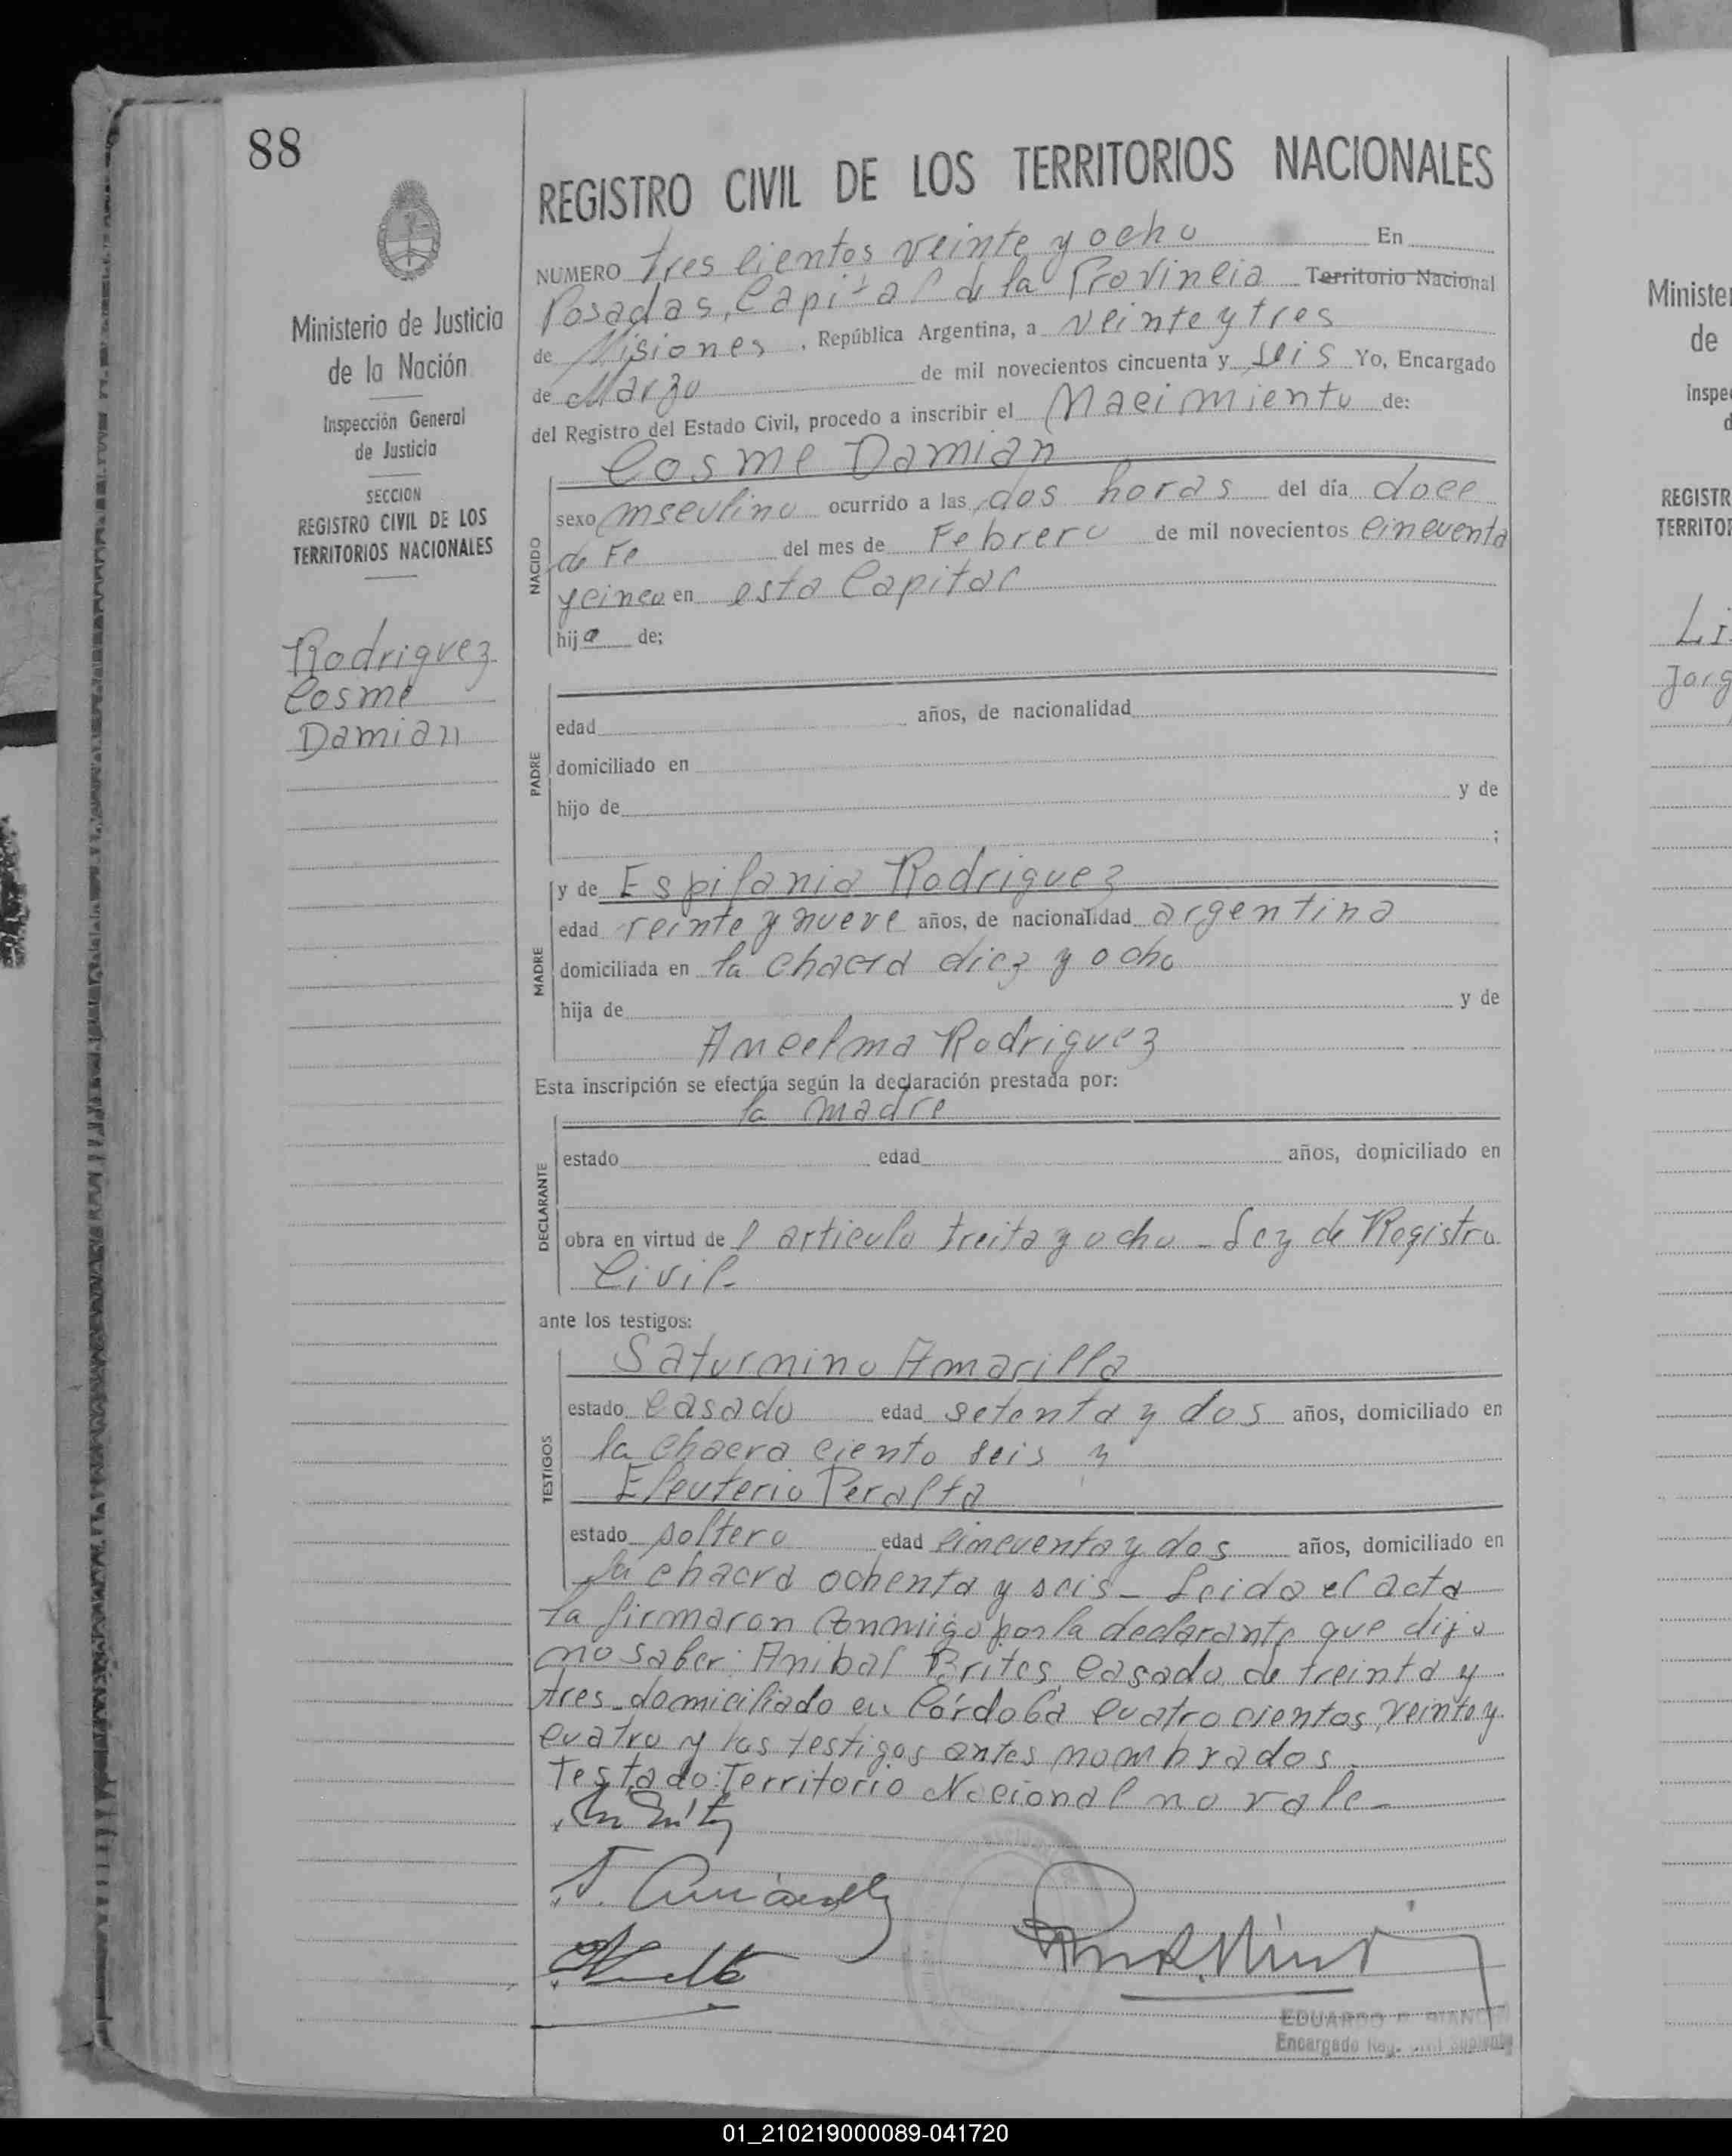 88
REGISTRO CIVIL DE LOS TERRITORIOS NACIONALES
Ministerio de Justicia
de la Nación
Inspección General
de Justicia
SECCION
REGISTRO CIVIL DE LOS
TERRITORIOS NACIONALES
Rodriguez
Cosme
Damian
NUMERO tres cientos veinte y ocho En
Posadas, Capital de la Provincia Territorio Nacional
de Misiones, República Argentina, a veinte y tres
de Marzo de mil novecientos cincuenta y seis Yo, Encargado
del Registro del Estado Civil, procedo a inscribir el Nacimiento de:
Cosme Damian
NACIDO
sexo mseulino ocurrido a las dos horas del día doce
de Fe del mes de Febrero de mil novecientos cincuenta
y cinco en esta Capital
hijo de;
PADRE
edad años, de nacionalidad
domiciliado en
hijo de y de
;
MADRE
y de Espifania Rodriguez
edad veinte y nueve años, de nacionalidad argentina
domiciliada en la chacra diez y ocho
hija de y de
Ancelma Rodriguez
Esta inscripción se efectúa según la declaración prestada por:
la madre
DECLARANTE
estado edad años, domiciliado en
obra en virtud de l articulo treita y ocho - Ley de Registro
Civil-
ante los testigos:
TESTIGOS
Saturnino Amarilla
estado casado edad setenta y dos años, domiciliado en
la chacra ciento seis y
Eleuterio Peralta
estado soltero edad cincuenta y dos años, domiciliado en
la chacra ochenta y seis- Leida el acta
la firmaron conmigo por la declarante que dijo
no saber: Anibal Brites, casado, de treinta y
tres domiciliado en Córdoba cuatro cientos veinte y
cuatro y los testigos antes nombrados.
Testado: Territorio Nacional no vale-
EDUARDO
Encargado Reg. Civil Suplente
Ministe
de
Inspe
d
REGISTR
TERRITO
Li
Jorg
01_210219000089-041720